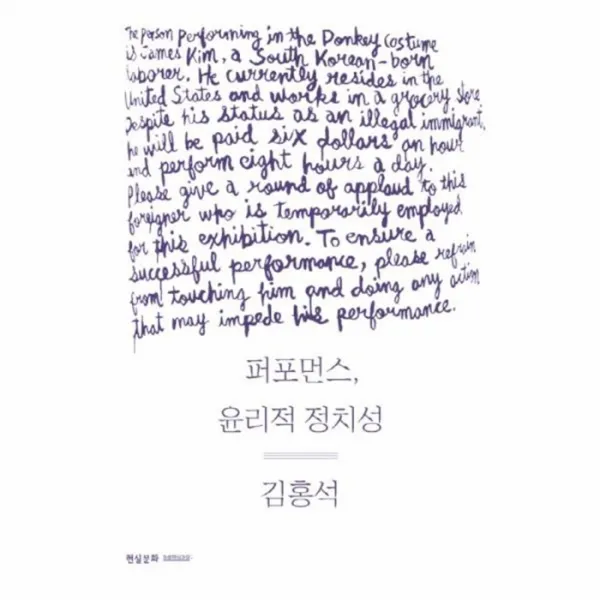 The person performing in the Donkey costume
is James Kim, a South Korean-born
laborer. He currently resides in the
United States and works in a grocery store
Despite his status as an illegal immigrant,
he will be paid six dollars an hour
and perform eight hours a day.
Please give a round of applaud to this
foreigner who is temporarily employed
for this exhibition. To ensure a
successful performance, please refrain
from touching him and doing any action
that may impede his performance.
퍼포먼스,
윤리적 정치성
김홍석
현실문화